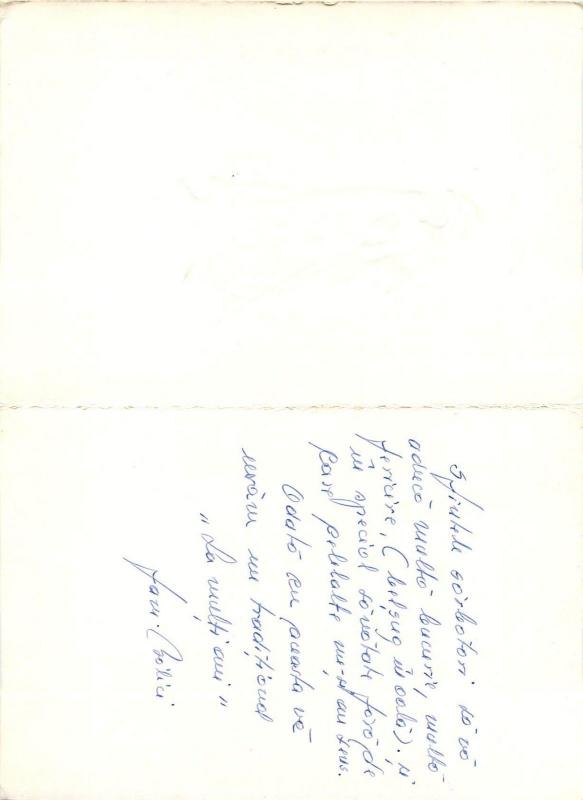 Sfintele sărbători să vă
aducă multă bucurie, multă
fericire, (belșug în oală). și
în special sănătate fără de
care celelalte nu-și au sens.
Odată cu aceasta vă
urăm un tradițional
„La mulți ani”
Fam.